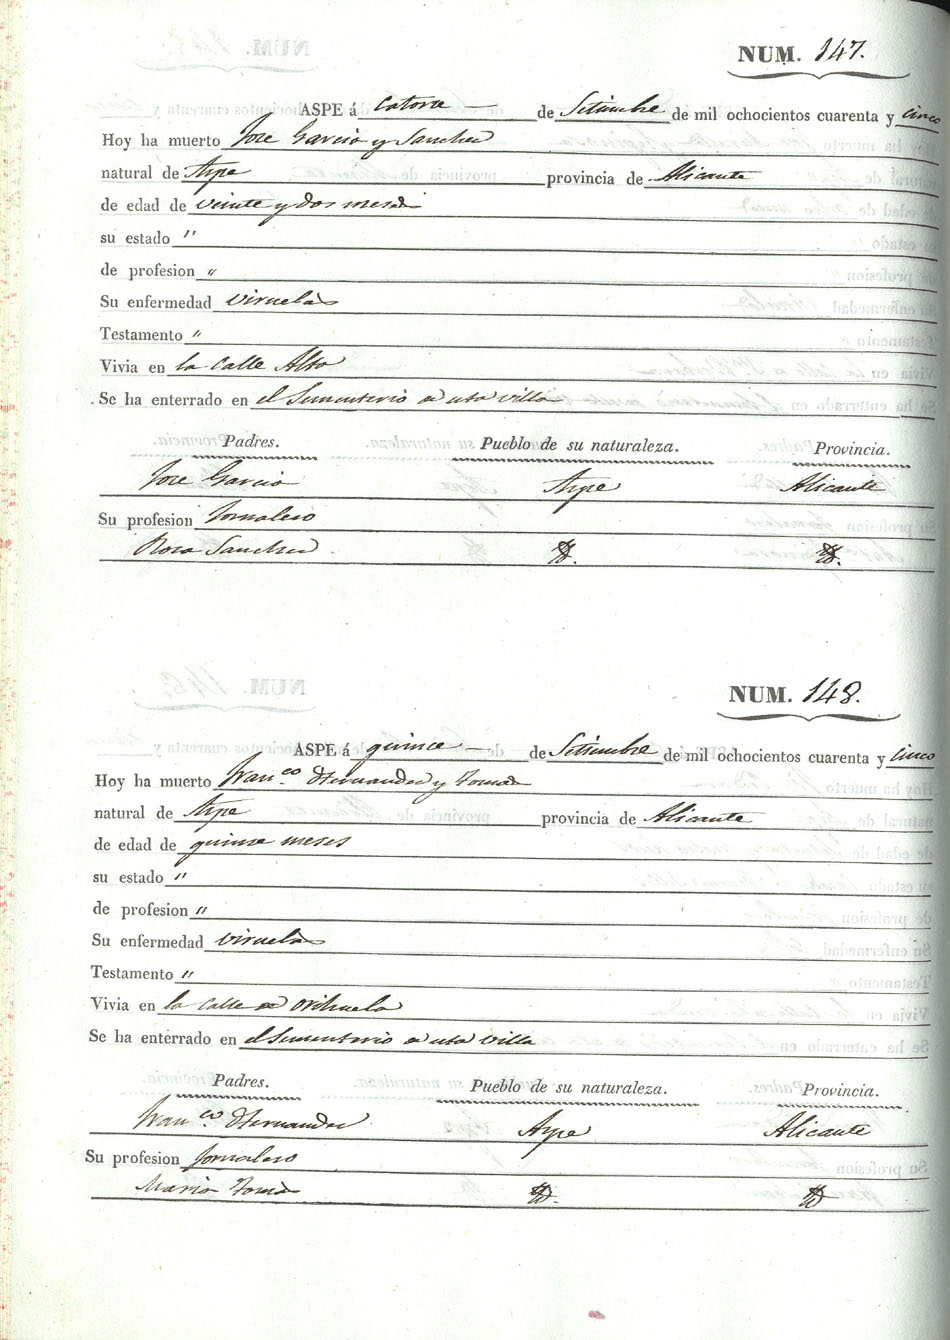 NUM. 147.
ASPE á catorce — de Setiembre de mil ochocientos cuarenta y cinco
Hoy ha muerto Jose Garcia y Sanchez
natural de Aspe provincia de Alicante
de edad de veinte y dos meses
su estado "
de profesion "
Su enfermedad viruelas
Testamento "
Vivia en la Calle Alta
Se ha enterrado en el Sementerio de esta villa
Padres. Pueblo de su naturaleza. Provincia.
Jose Garcia Aspe Alicante
Su profesion Jornalero
Rosa Sanchez Yd. Yd.
NUM. 148.
ASPE á quince — de Setiembre de mil ochocientos cuarenta y cinco
Hoy ha muerto Fran.co Hernandez y Tomas
natural de Aspe provincia de Alicante
de edad de quinse meses
su estado "
de profesion "
Su enfermedad viruelas
Testamento "
Vivia en la calle de Orihuela
Se ha enterrado en el Sementerio de esta villa
Padres. Pueblo de su naturaleza. Provincia.
Fran.co Hernandez Aspe Alicante
Su profesion Jornalero
Maria Tomas Yd. Yd